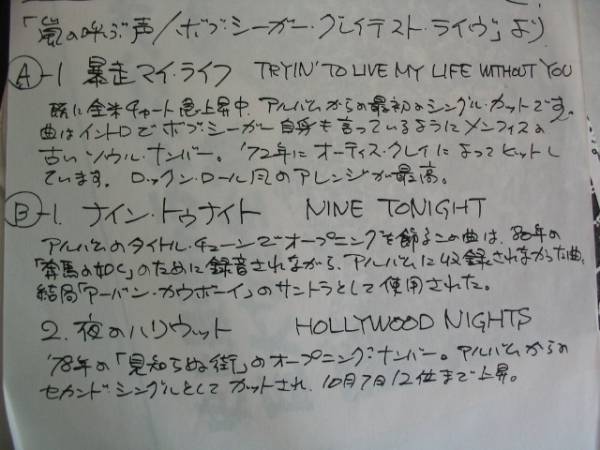 「嵐の呼ぶ声/ボブ・シーガー・グレイテスト・ライヴ」より
Ⓐ-1 暴走マイ・ライフ TRYIN' TO LIVE MY LIFE WITHOUT YOU
既に全米チャート急上昇中、アルバムからの最初のシングル・カットです。
曲はイントロでボブ・シーガー自身も言っているようにメンフィスの
古いソウル・ナンバー。'72年にオーティス・クレイによってヒットし
ています。ロックン・ロール風のアレンジが最高。
Ⓑ-1. ナイン・トゥナイト NINE TONIGHT
アルバムのタイトル・チューンでオープニングを飾るこの曲は、80年の
「奔馬の如く」のために録音されながら、アルバムに収録されなかった曲。
結局「アーバン・カウボーイ」のサントラとして使用された。
2. 夜のハリウッド HOLLYWOOD NIGHTS
'78年の「見知らぬ街」のオープニング・ナンバー。アルバムからの
セカンド・シングルとしてカットされ、10月7日12位まで上昇。